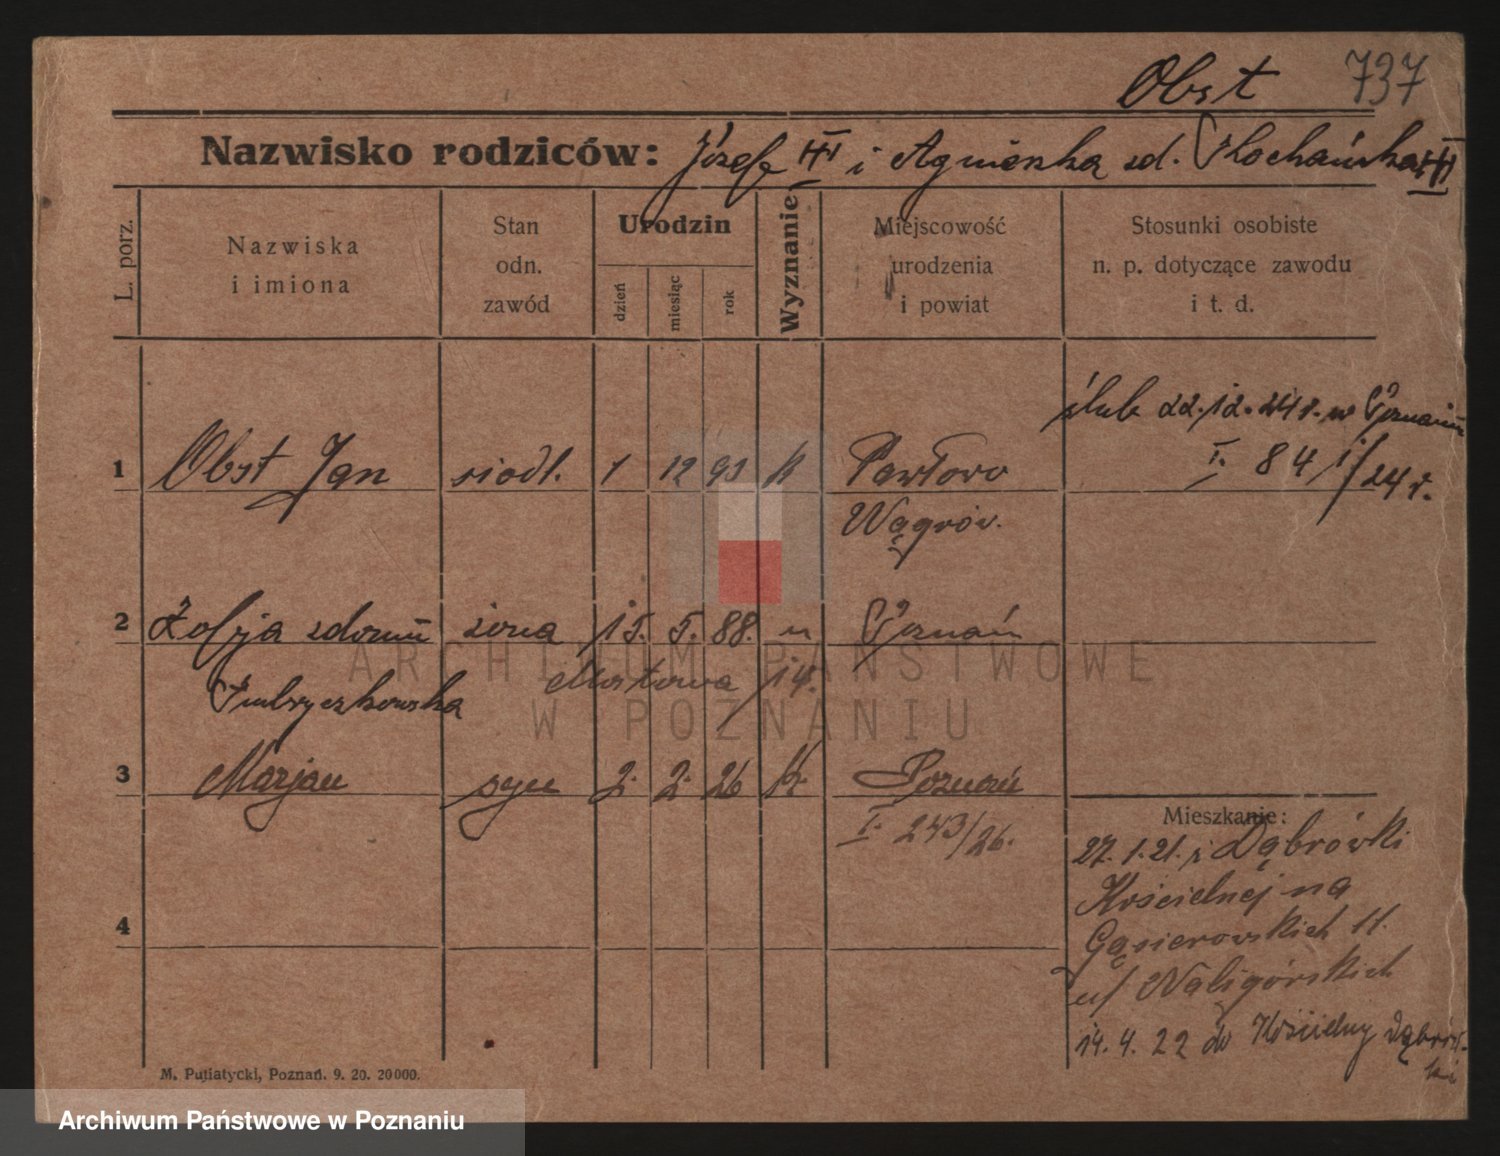 Obst 737
Nazwisko rodziców: Józef i Agnieszka zd.
L. porz.
Nazwiska
i imiona
Stan
odn.
zawód
Urodzin
dzień
miesiąc
rok
Wyznanie
Miejscowość
urodzenia
i powiat
Stosunki osobiste
n. p. dotyczące zawodu
i t. d.
ślub 22.12.24 r. w Poznaniu
I. 841/24 r.
1 Obst Jan siodl. 1 12 93 k Pawłowo
Wągrów.
2 Zofja zdomu żona 15. 5. 88. " Poznań
Mostowa 14.
3 Marjan syn 2. 2. 26 k. Poznań
I. 243/26.
4
Mieszkanie:
27. 1. 21. z Dąbrówki
Kościelnej na
Gąsiorowskich 11.
u/ Naligórskich
14. 4. 22 do Kościelny Dąbrów-
ki
M. Putiatycki, Poznań. 9. 20. 20000.
ARCHIWUM PAŃSTWOWE
W POZNANIU
Archiwum Państwowe w Poznaniu